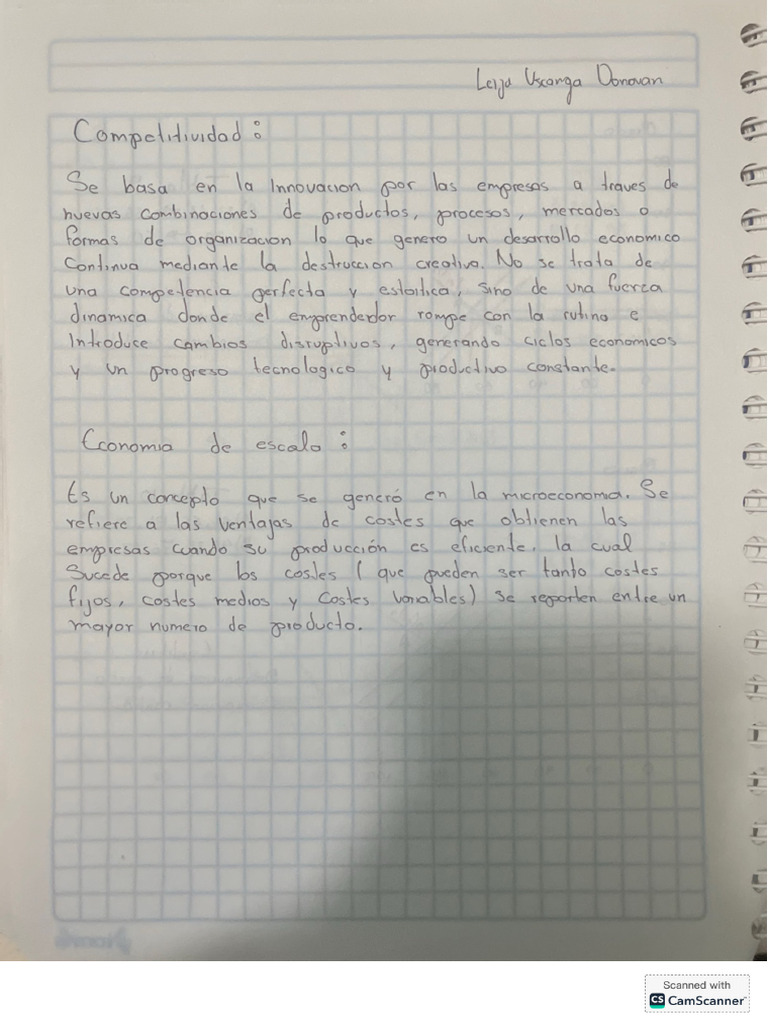 Leija Uscanga Donovan
Competitividad:
Se basa en la Innovacion por las empresas a traves de
nuevas combinaciones de productos, procesos, mercados o
formas de organizacion lo que genero un desarrollo economico
Continuo mediante la destruccion creativa. No se trata de
una competencia perfecta y estoitica, sino de una fuerza
dinamica donde el emprendedor rompe con la rutina e
Introduce cambios disruptivos, generando ciclos economicos
y un progreso tecnologico y productivo constante.
Economia de escala:
Es un concepto que se generó en la microeconomia. Se
refiere a las ventajas de costes que obtienen las
empresas cuando su producción es eficiente, la cual
Sucede porque los costes (que pueden ser tanto costes
fijos, costes medios y costes variables) se reporten entre un
mayor numero de producto.
Scanned with
CS CamScanner